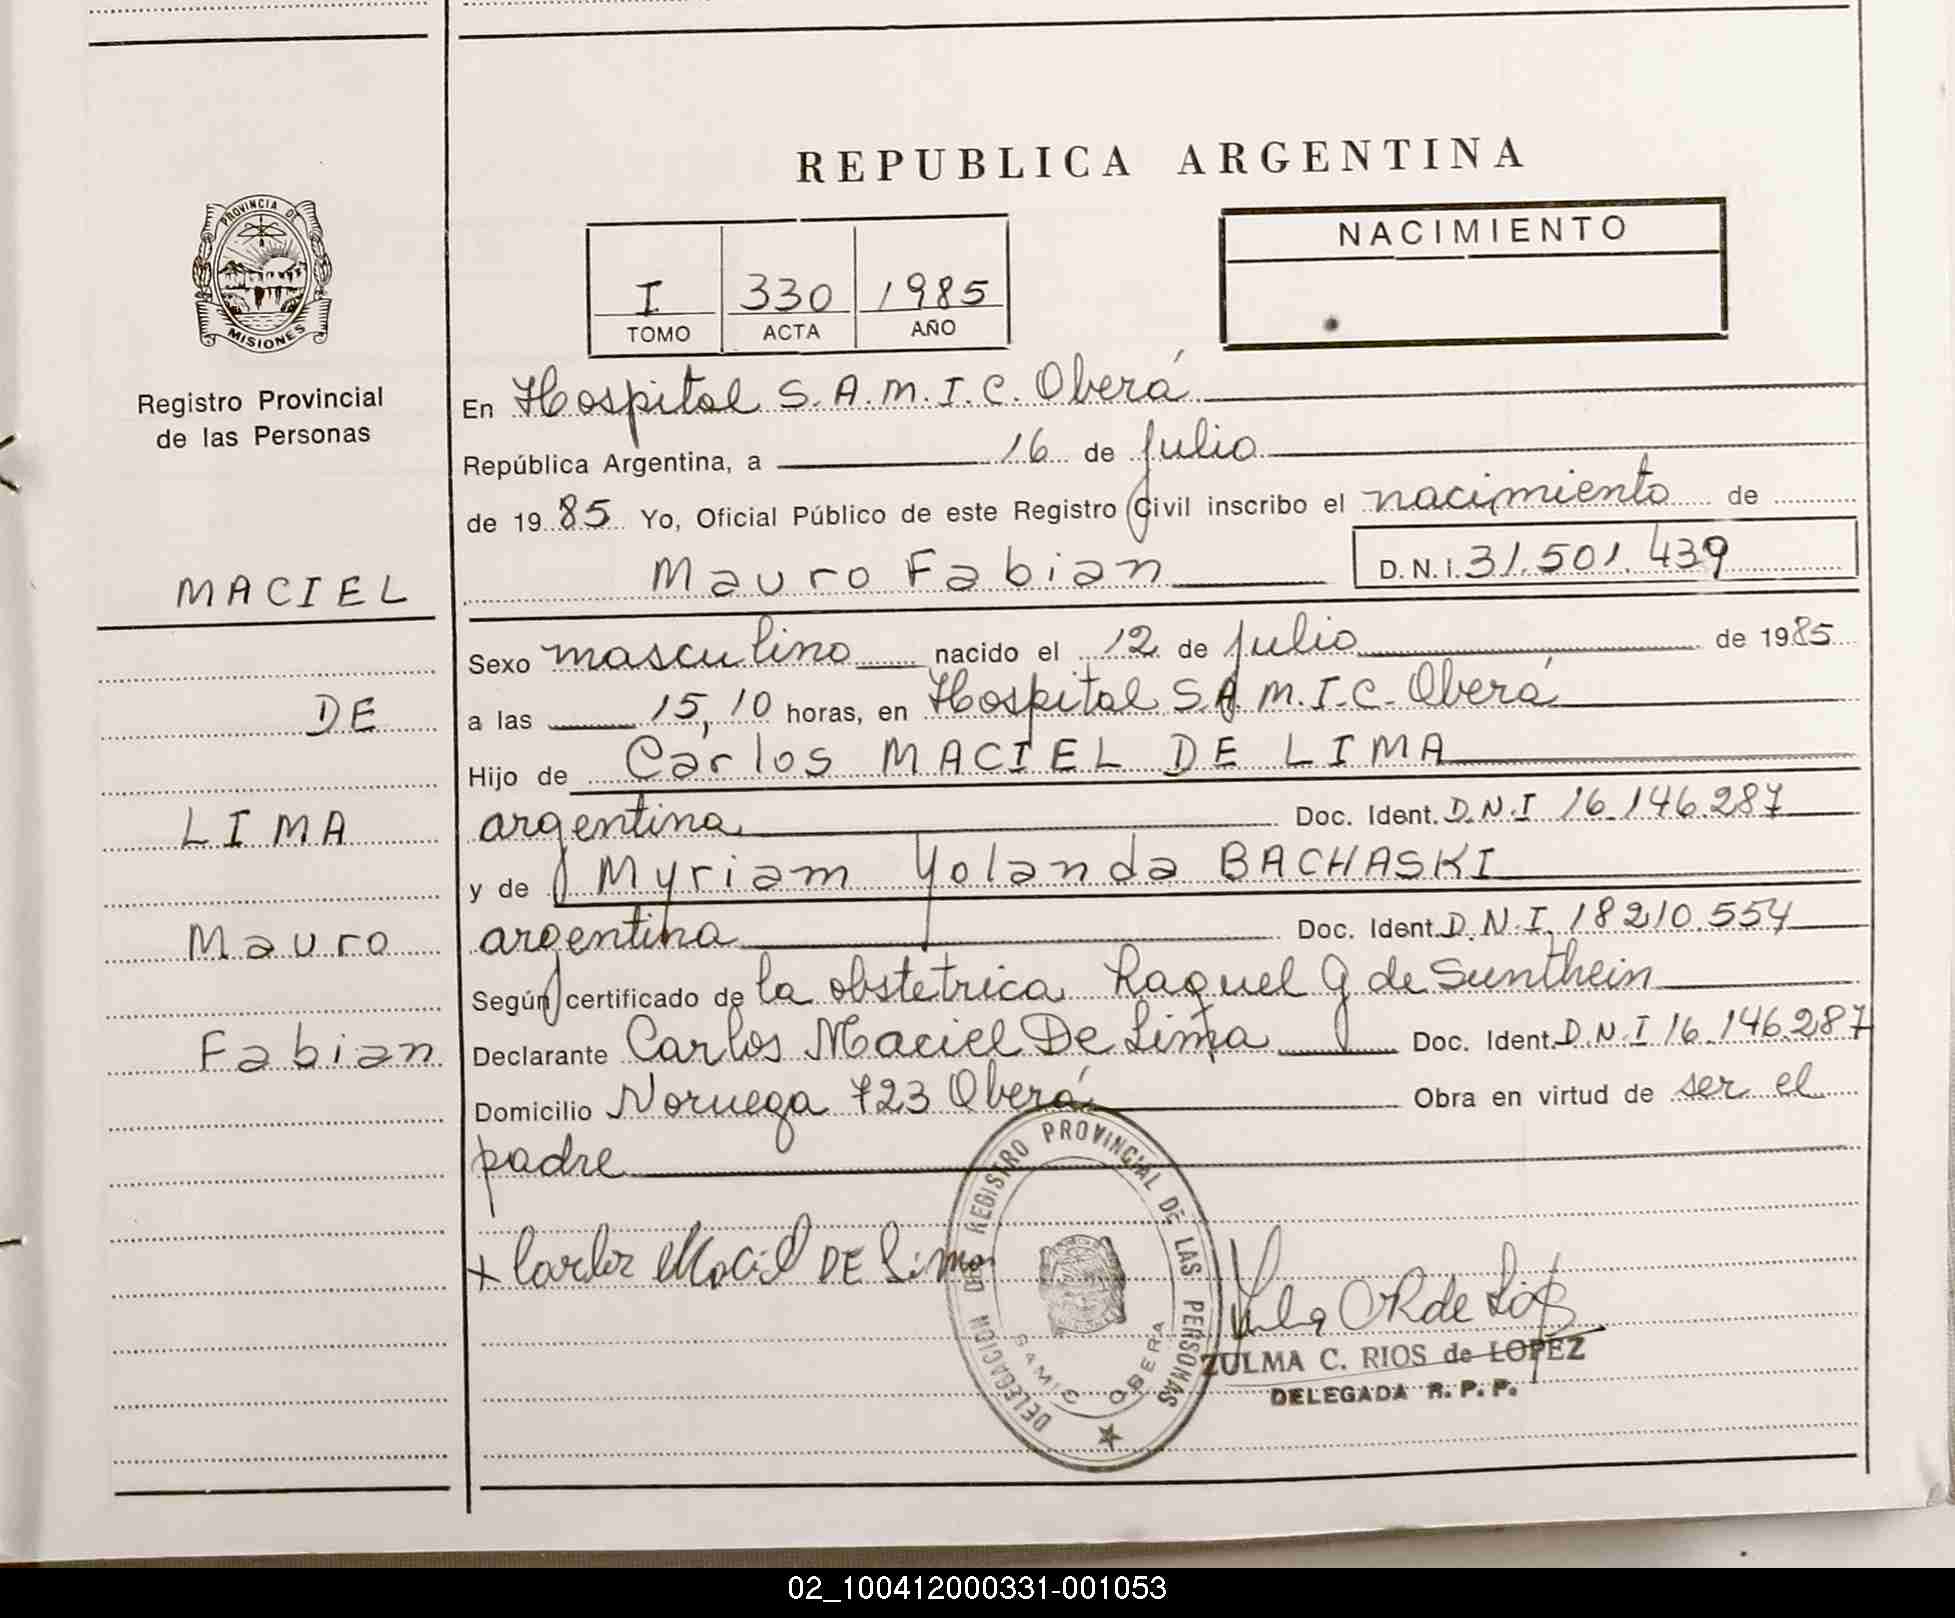 REPUBLICA ARGENTINA
PROVINCIA DE MISIONES
I 330 1985
TOMO ACTA AÑO
NACIMIENTO
Registro Provincial
de las Personas
MACIEL
DE
LIMA
Mauro
Fabian
En Hospital S.A.M.I.C. Oberá
República Argentina, a 16 de julio
de 1985 Yo, Oficial Público de este Registro Civil inscribo el nacimiento de
Mauro Fabian D.N.I. 31.501.439
Sexo masculino nacido el 12 de julio de 1985
a las 15,10 horas, en Hospital S.A.M.I.C. Oberá
Hijo de Carlos MACIEL DE LIMA
argentina Doc. Ident. D.N.I 16.146.287
y de Myriam Yolanda BACHASKI
argentina Doc. Ident. D.N.I. 18210.554
Según certificado de la obstetrica Raquel G de Sunthein
Declarante Carlos Maciel De Lima Doc. Ident. D.N.I 16.146.287
Domicilio Noruega 723 Oberá Obra en virtud de ser el
padre
+ Carlos Maciel DE Lima
DELEGACION DEL REGISTRO PROVINCIAL DE LAS PERSONAS
SAMIC OBERA
ZULMA C. RIOS de LOPEZ
DELEGADA R. P. P.
02_100412000331-001053